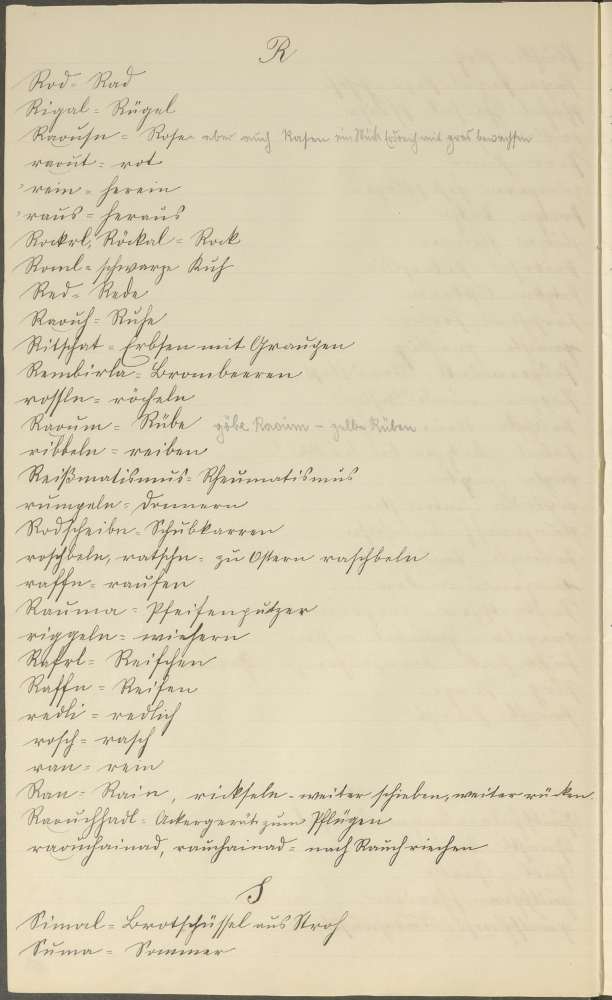 R
Rod = Rad
Rigal = Rügel
Raousn = Rosen aber auch Rasen ein Stück mit gras bewachsen
raout = rot
'rein = herein
'raus = heraus
Rockrl, Röckal = Rock
Roml = schwarze Kuh
Red = Rede
Raouh = Ruhe
Ritschat = Erbsen mit Graupen
Rembirla = Brombeeren
rossln = röcheln
Raoum = Rübe gölbe Raoum – gelbe Rüben
ribbeln = reiben
Reißmatismus = Rheumatismus
rumpeln = donnern
Rodscheibn = Schubkarren
roschbeln, ratschn = zu Ostern raschbeln
raffn = raufen
Rauma = Pfeifenputzer
riggeln = wiehern
Rafrl = Reifchen
Raffn = Reifen
redli = redlich
rosch = rasch
ran = rein
Ran = Rain, rickseln = weiter schieben, weiter rücken
Raouchhadl = Ackergerät zum Pflügen
raouchainad, rauchainad = nach Rauch riechen
S
Simal = Brotschüssel aus Stroh
Suma = Sommer